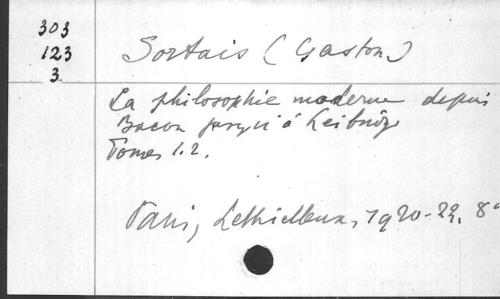 303
123
3
Sortais (Gaston)
La philosophie moderne depuis
Bacon jusqu'à Leibniz
Tomes 1.2.
Paris, Lethielleux, 1920-22. 8°